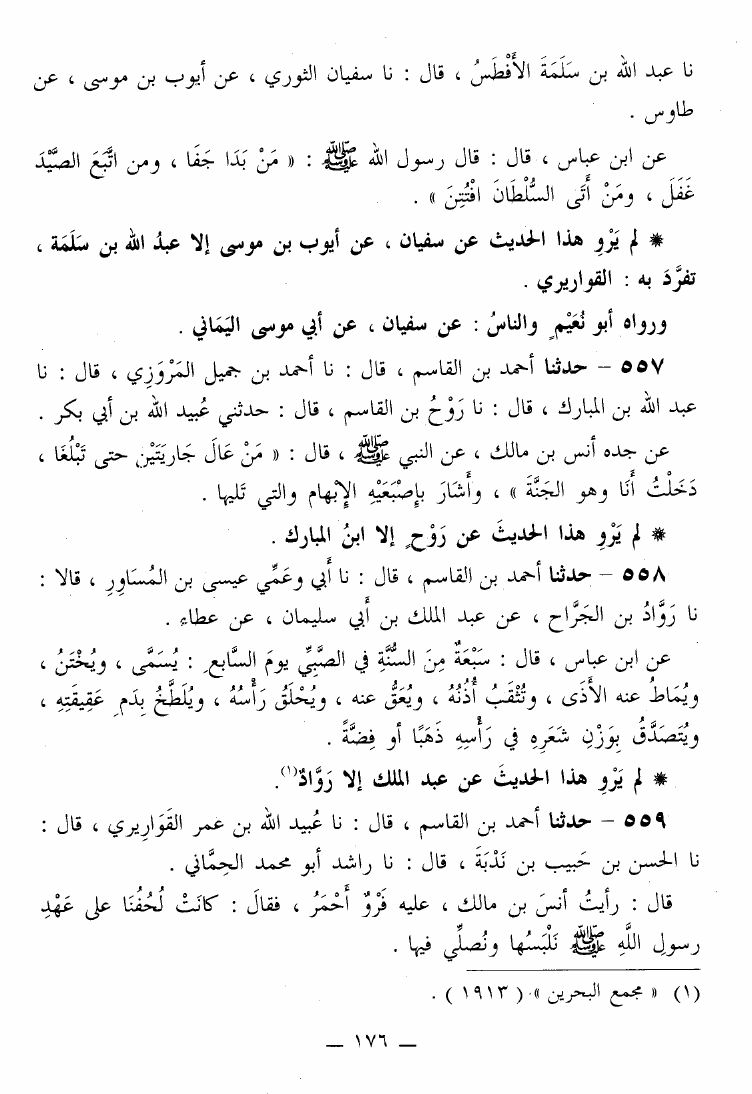 نا عبد الله بن سَلَمَةَ الأَفْطَسُ ، قال : نا سفيان الثوري ، عن أيوب بن موسى ، عن
طاوس .
عن ابن عباس ، قال : قال رسول الله ﷺ : « مَنْ بَدَا جَفَا ، ومن اتَّبَعَ الصَّيْدَ
غَفَلَ ، ومَنْ أَتَى السُّلْطَانَ افْتُتِنَ » .
* لم يَرْوِ هذا الحديث عن سفيان ، عن أيوب بن موسى إلا عبدُ الله بن سَلَمَة ،
تفرَّدَ به : القواريري .
ورواه أبو نُعَيْمٍ والناسُ : عن سفيان ، عن أبي موسى اليَمَاني .
٥٥٧ – حدثنا أحمد بن القاسم ، قال : نا أحمد بن جميل المَرْوَزِي ، قال : نا
عبد الله بن المبارك ، قال : نا رَوْحُ بن القاسم ، قال : حدثني عُبيد الله بن أبي بكر .
عن جده أنس بن مالك ، عن النبي ﷺ ، قال : « مَنْ عَالَ جَارِيَتَيْنِ حتى تَبْلُغَا ،
دَخَلْتُ أَنَا وهو الجَنَّةَ » ، وأَشَارَ بإِصْبَعَيْهِ الإِبْهام والتي تَليها .
* لم يَرْوِ هذا الحديثَ عن رَوْحٍ إلا ابنُ المبارك .
٥٥٨ – حدثنا أحمد بن القاسم ، قال : نا أَبي وعَمِّي عيسى بن المُسَاوِرِ ، قالا :
نا رَوَّادُ بن الجَرَّاح ، عن عبد الملك بن أَبي سليمان ، عن عطاء .
عن ابن عباس ، قال : سَبْعَةٌ مِنَ السُّنَّةِ في الصَّبِيِّ يومَ السَّابِعِ : يُسَمَّى ، ويُخْتَنُ ،
ويُمَاطُ عنه الأَذَى ، وتُثْقَبُ أُذُنُهُ ، ويُعَقُّ عنه ، ويُحْلَقُ رَأْسُهُ ، ويُلَطَّخُ بِدَمِ عَقِيقَتِهِ ،
ويُتَصَدَّقُ بِوَزْنِ شَعَرِهِ في رَأْسِهِ ذَهَبًا أو فِضَّةً .
* لم يَرْوِ هذا الحديثَ عن عبد الملك إلا رَوَّادٌ(١).
٥٥٩ – حدثنا أحمد بن القاسم ، قال : نا عُبيد الله بن عمر القَوَارِيري ، قال :
نا الحسن بن حَبيب بن نَدْبَةَ ، قال : نا راشد أبو محمد الحِمَّاني .
قال : رأيتُ أنسَ بن مالك ، عليه فَرْوٌ أَحْمَرُ ، فقالَ : كانَتْ لُحُفُنَا على عَهْدِ
رسولِ اللَّهِ ﷺ نَلْبَسُها ونُصلِّي فيها .
(١) « مجمع البحرين » ( ١٩١٣ ) .
– ١٧٦ –